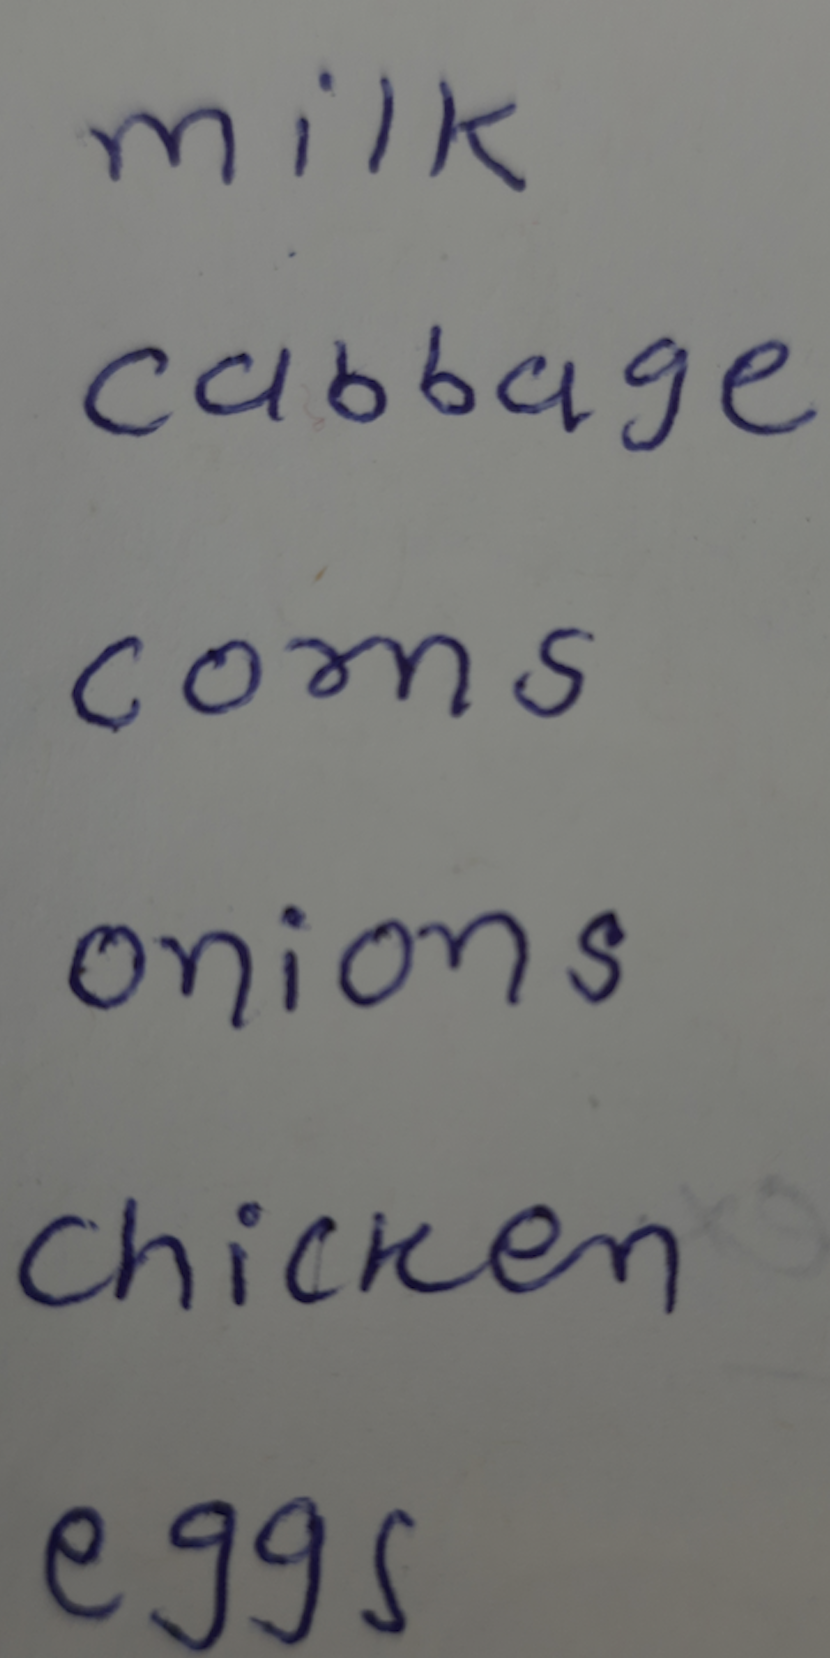 milk
cabbage
corns
onions
chicken
eggs